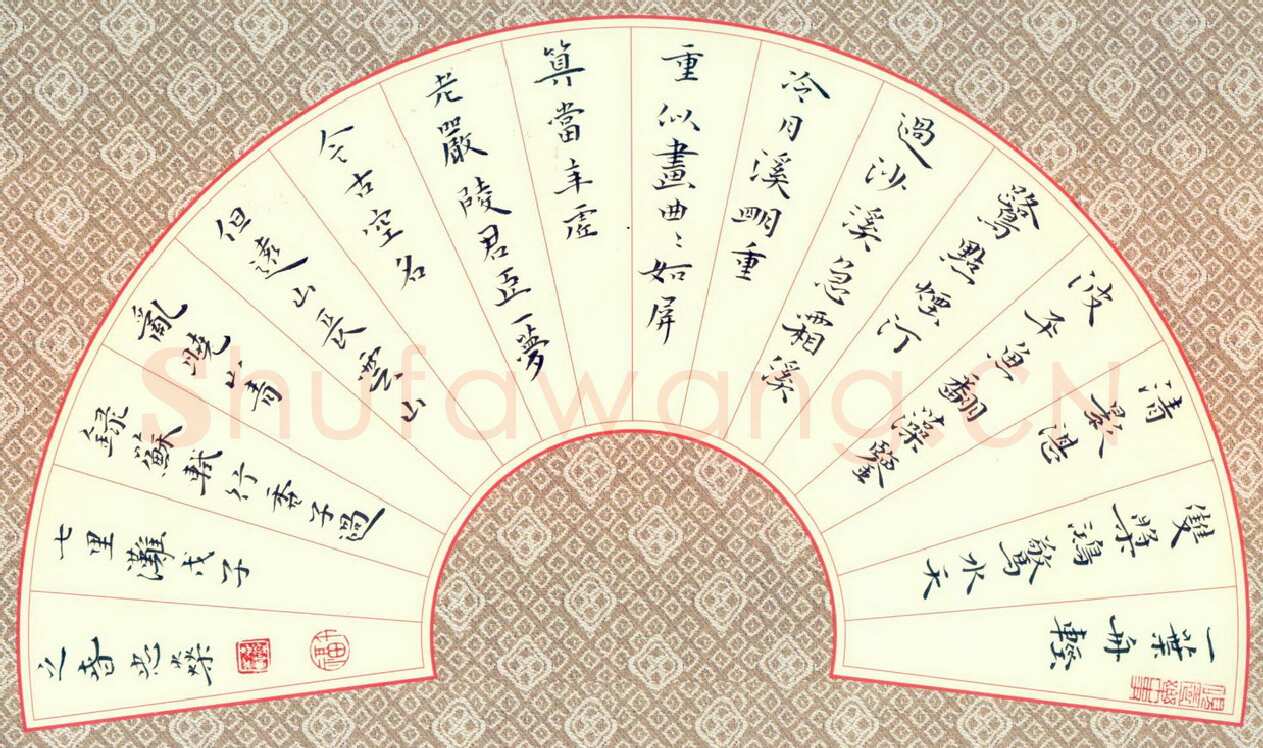 一葉舟輕
雙槳鴻驚水天
清影湛
波平魚翻藻鑒
鷺點煙汀
過沙溪急霜溪
冷月溪明重
重似畫曲〻如屏
算當年虛
老嚴陵君臣一夢
今古空名
但遠山長雲山
亂曉山青
錄蘇軾行香子過
七里灘戊子
之春
Shufawang.CN